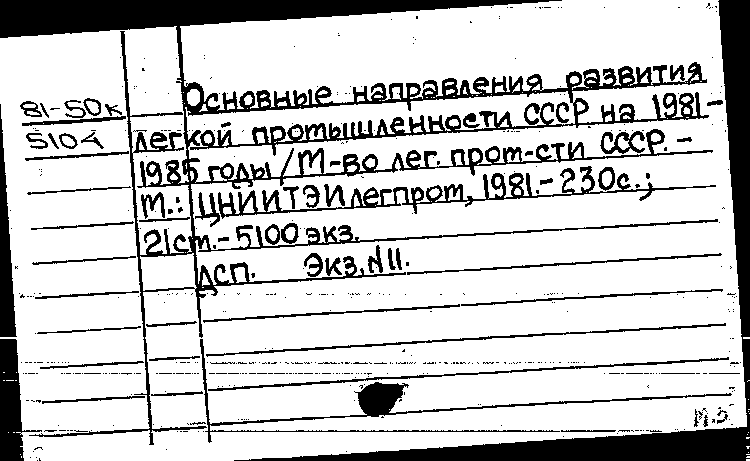 81-50к
5104
Основные направления развития
легкой промышленности СССР на 1981-
1985 годы / М-во лег. пром-сти СССР. -
М.: ЦНИИТЭИлегпром, 1981. - 230с.;
21см. - 5100 экз.
ДСП. Экз. N 11.
М.З